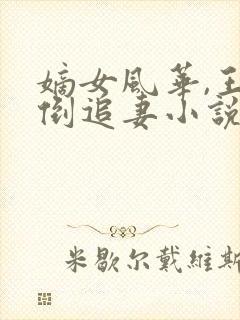 嫡女風華,王
倒追妻小說
米歇尔戴維斯